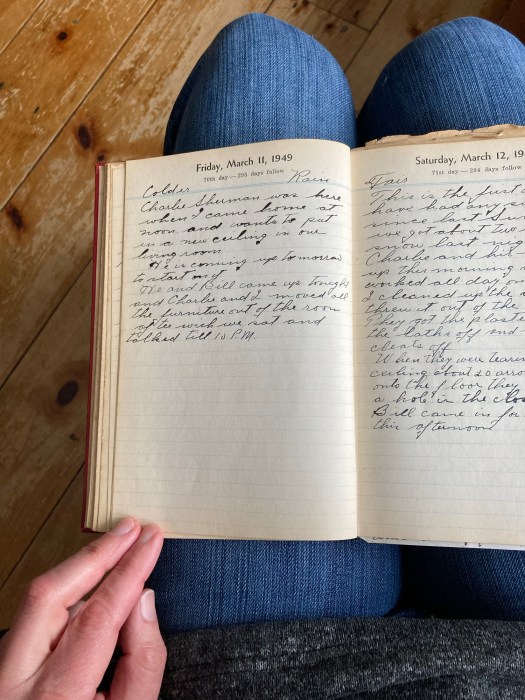 Friday, March 11, 1949
70th day—295 days follow
Colder Rain
Charlie Sherman was here
when I came home at
noon and wants to put
in a new ceiling in one
living room
He is coming up to morrow
to start on it
He and Bill came up tonight
and Charlie and I moved all
the furniture out of the room
after wich we sat and
talked till 10 P.M.
Saturday, March 12, 19
71st day—294 days follow
Fair
This is the first
have had any
since last
we got about two
snow last
Charlie and his
up this morning
worked all day on
I cleaned up the
threw it out of the
They got the plaste
the laths off and
cleats off
When they were tearin
ceiling about 20
onto the floor they
a hole in the clos
Bill came in for
this afternoon